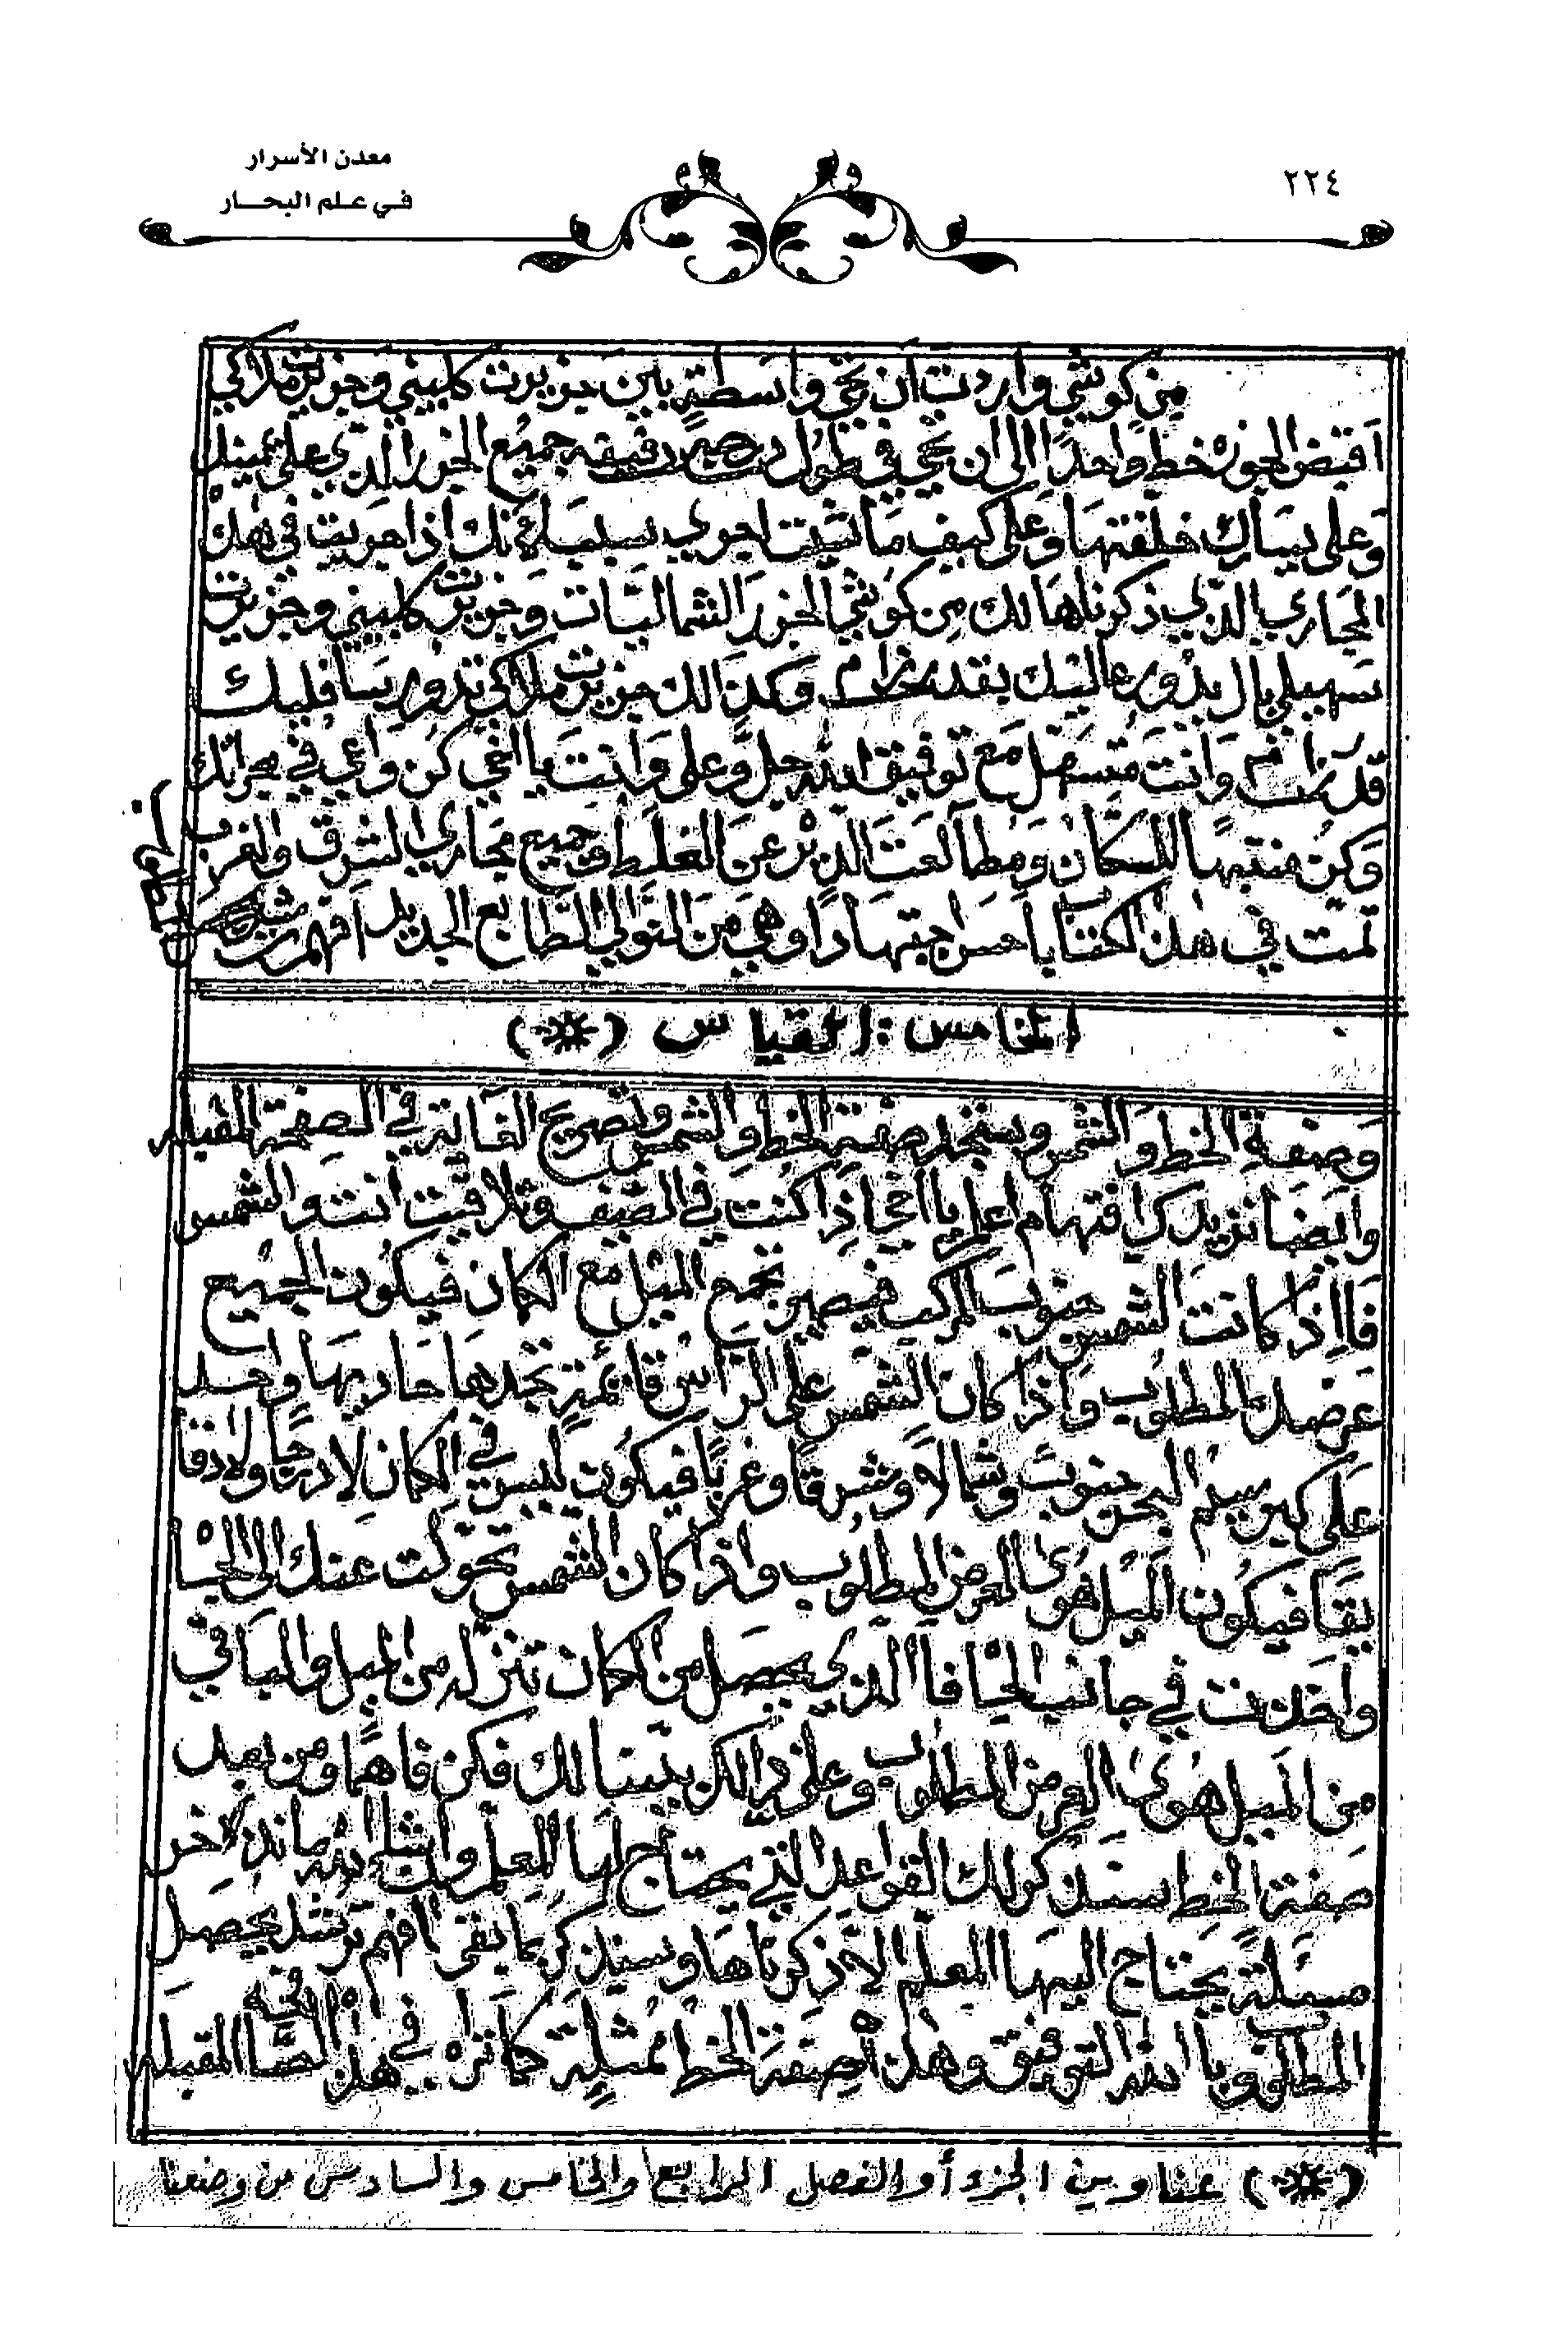 معدن الأسرار
في علم البحار
٢٢٤
من كوشي واردت ان تجي واسطة بين جزيرت كلبيني وجزيرت ملاكي
اقبض الجوزه خط واحدا الى ان تجي في طول دقيقه جميع الجزر الذي على يمينك
وعلى يسارك خلفتها وعلى كيف ما شيت اجري اذا هويت في هذه
المجاري الذي ذكرناها لك من كوشي الجزر الشماليات وجزيرت كلبيني وجزيرت
سهيلي بال يدور عاليك بقدر وكذالك جزيرت ملاكي تدور
قدر وانت مع توفيق الله جل وعلى وانت يا اخي كن واعي في مجراتك
وكن منتبها للسكان ومطالعت الديره عن الغلط وجميع مجاري الشرق والغرب
تمت في هذا الكتاب احسن اجتهادا وهي من النولي الطابع الجديد افهم
الخامس: القياس (*)
وصفة الخط والشمس وستجد صفة الخط والشمس وتصريح الغاية في الصفحة المقبله
وايضا نزيدك افتهام اعلم يا اخي اذا كنت في الصيف وتلاقيت انت والشمس
فا اذا كانت الشمس جنوب المركب فيصير تجمع الميل مع الكمان فيكون الجميع
عرضك المطلوب واذا كان الشمس على الراس قائمة تجدها واحد
على جنوب وشمالا وشرقا وغربا فيكون ليس في الكمان لا درجا ولا دقا
يقا فيكون الميل هوى العرض المطلوب واذا كان الشمس تحولت عنك الى الجاه
واخذت في جانب الجاه فا الذي يحصل من الكمان تنزله من الميل والباقي
من الميل هوى العرض المطلوب وعلى ذالك بينا لك فكن فاهما ومن بعد
صفة الخط سنذكر لك القواعد التي يحتاج لها المعلم وان شاء الله ما نذخر
مسئلة يحتاج اليها المعلم الا ذكرناها وسنذكر بما بقى افهم ترشد يحصل
المطلوب وبا الله التوفيق وهذه صفة الخط ممثلة كما تراه في هذه الصفحه المقبله
(*) عناوين الجزء أو الفصل الرابع والخامس والسادس من وضعنا